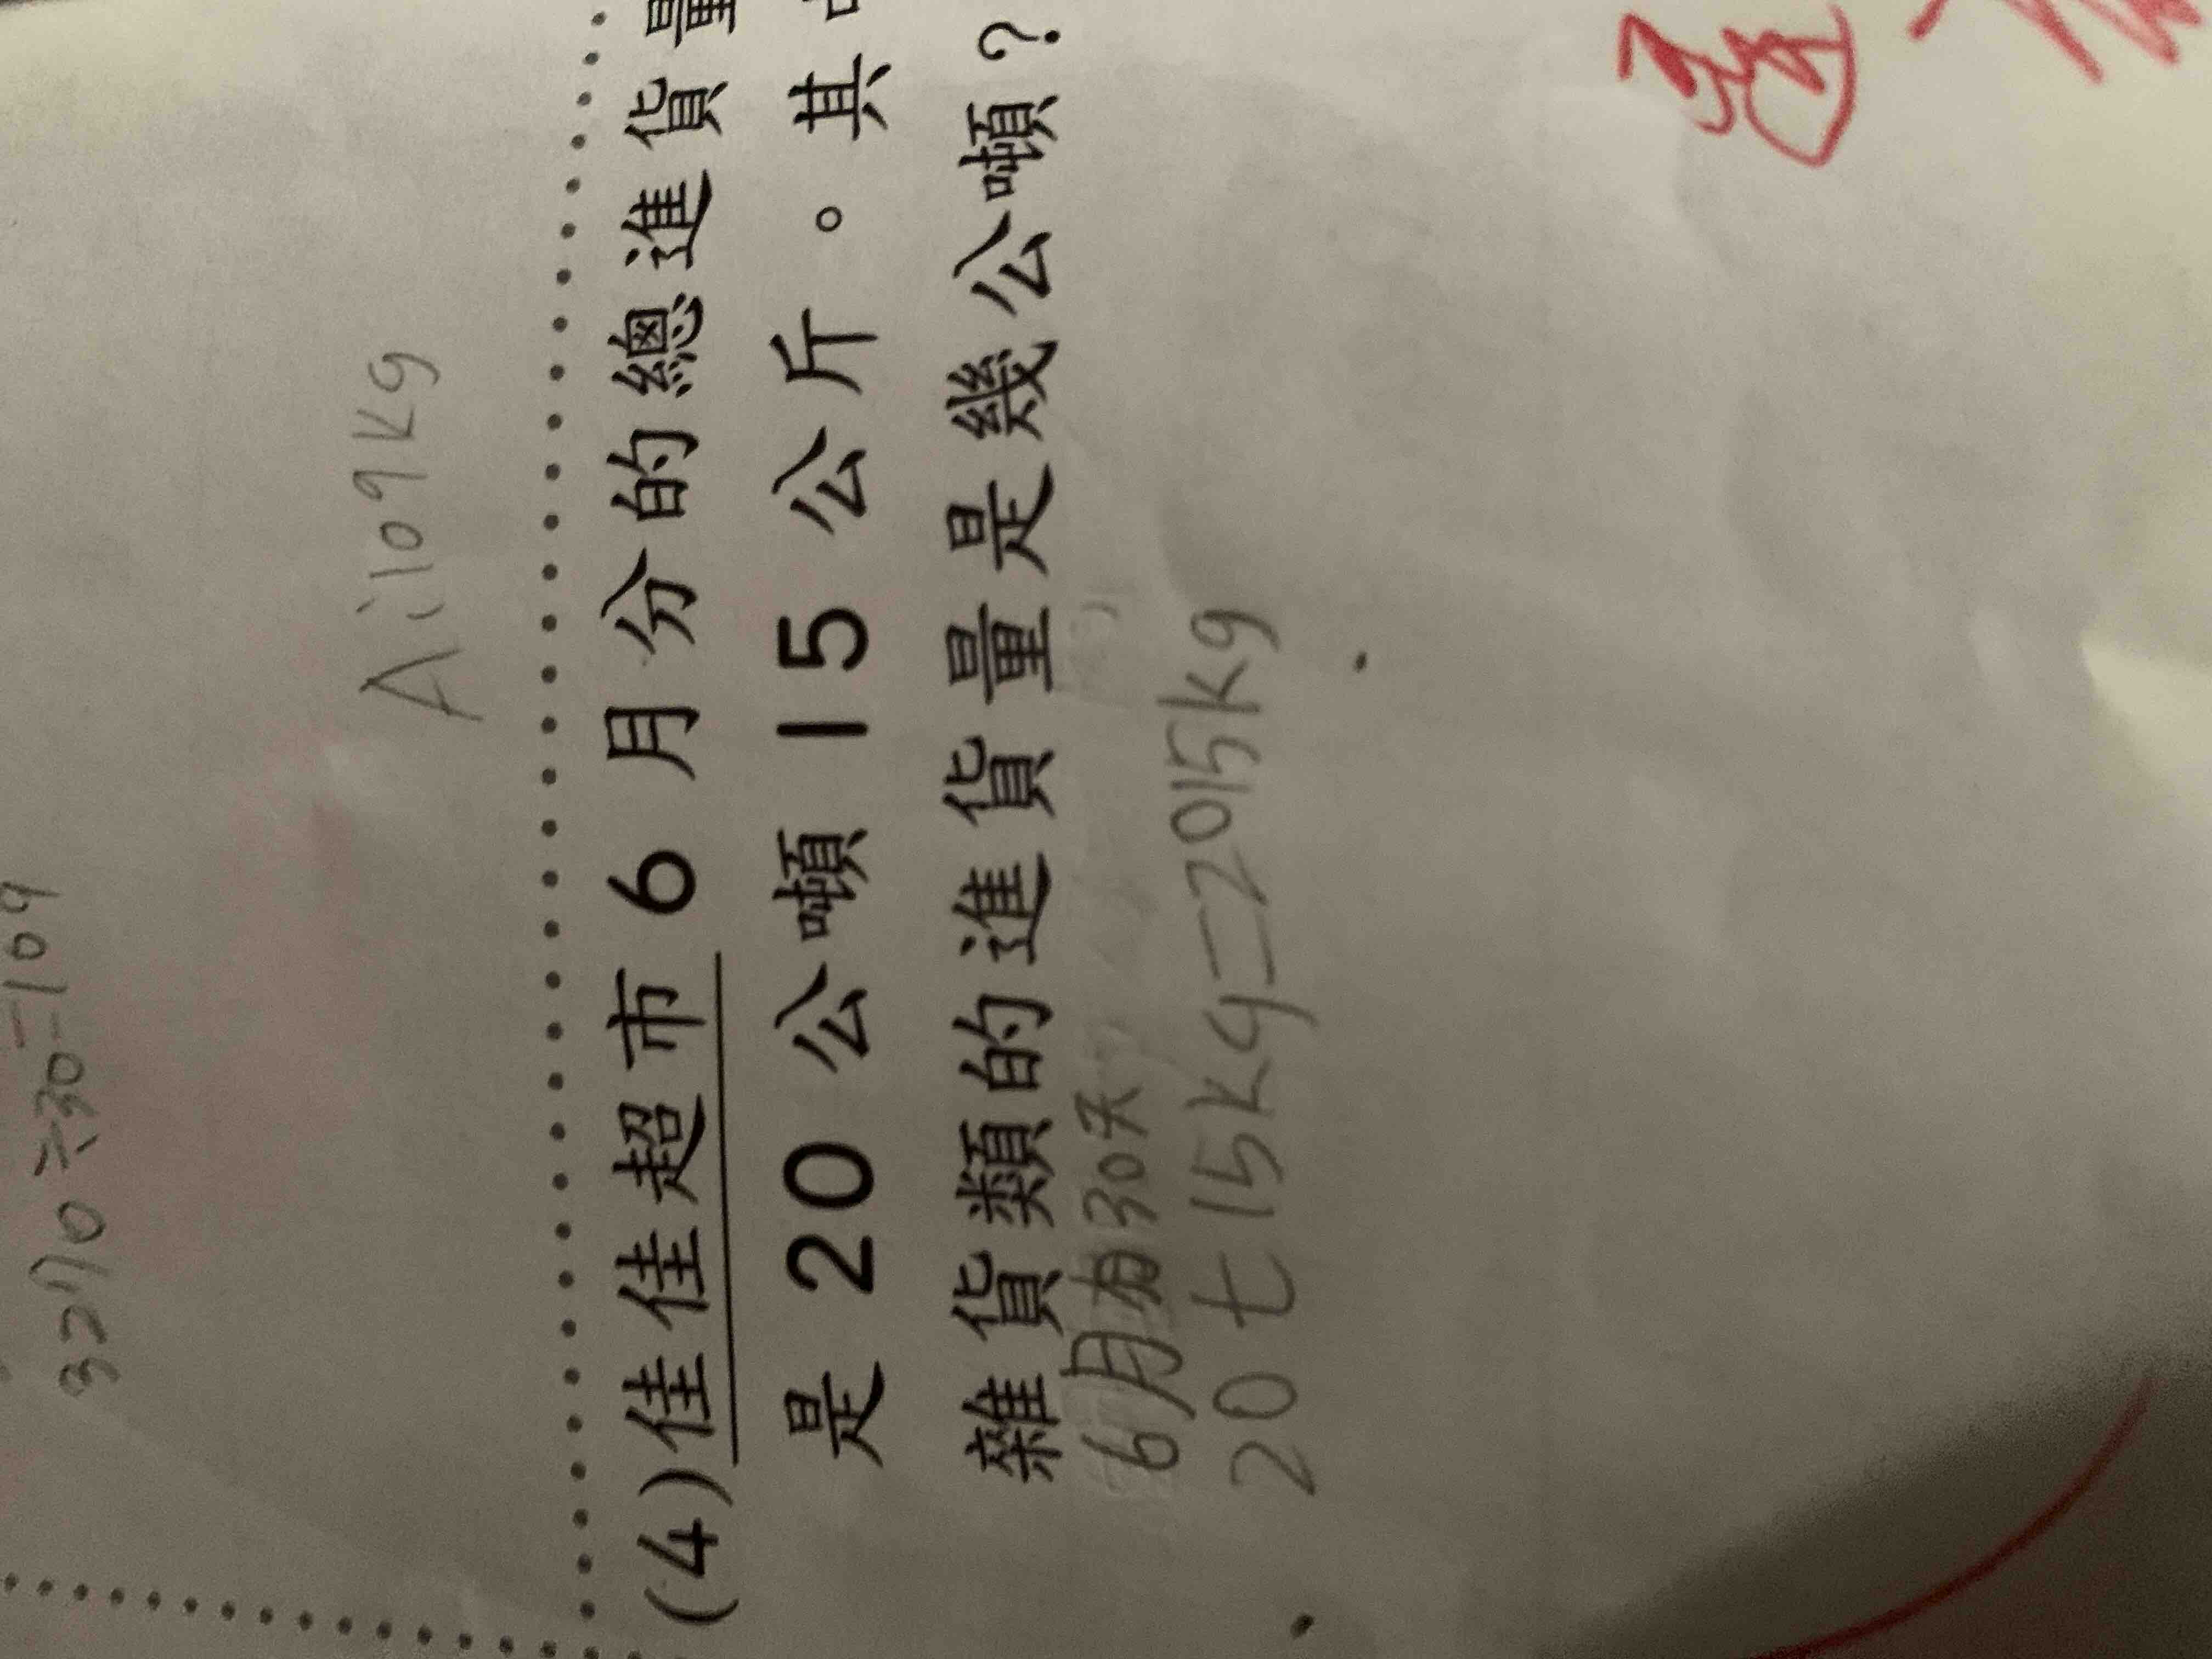 3270÷30=109
A:109kg
(4)佳佳超市6月分的總進貨量
是20公噸15公斤。其
雜貨類的進貨量是幾公噸?
6月有30天
20t15kg=2015kg